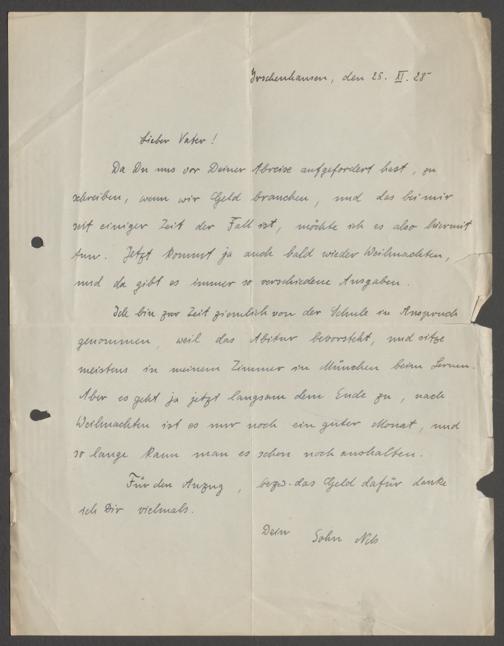 Irschenhausen, den 25. XI. 28
Lieber Vater!
Da Du uns vor Deiner Abreise aufgefordert hast, zu
schreiben, wenn wir Geld brauchen, und das bei mir
seit einiger Zeit der Fall ist, möchte ich es also hiermit
tun. Jetzt kommt ja auch bald wieder Weihnachten,
und da gibt es immer so verschiedene Ausgaben.
Ich bin zur Zeit ziemlich von der Schule in Anspruch
genommen, weil das Abitur bevorsteht, und sitze
meistens in meinem Zimmer in München beim Lernen.
Aber es geht ja jetzt langsam dem Ende zu, nach
Weihnachten ist es nur noch ein guter Monat, und
so lange kann man es schon noch aushalten.
Für den Anzug, bezw. das Geld dafür danke
ich Dir vielmals.
Dein Sohn Nils